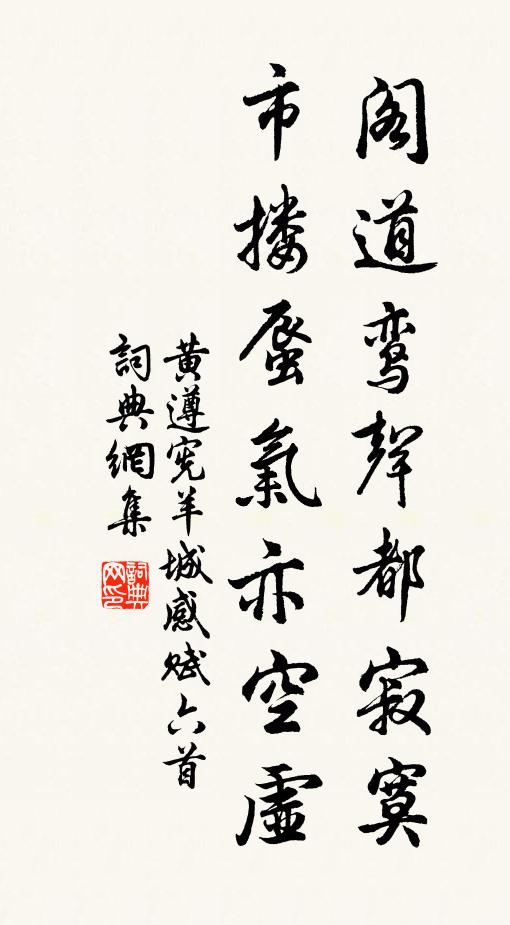 阁道鸾聲都寂寞
市搂蜃氣亦空虛
黄遵宪羊城感赋六首
詞典網集
詞典网印